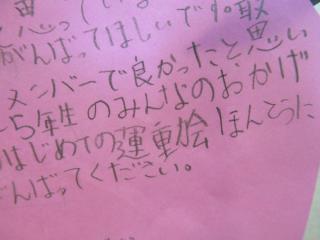 思っている
がんばってほしいです。最
メンバーで良かったと思い
5年生のみんなのおかげ
はじめての運動会ほんとうに
がんばってください。